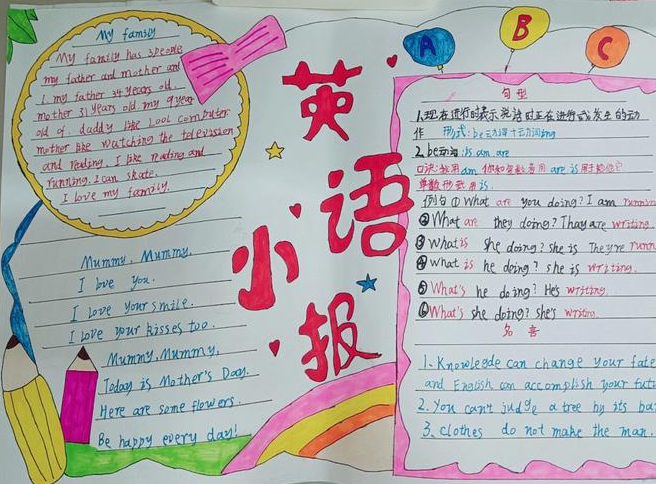 My family
My family has 3people
my father and mother and
I. my father 34 years old.
mother 31 years old. my 9year
old of. daddy like Lool computer
mother like watching the television
and reading. I like reading and
running. I can skate.
I love my family.
Mummy, Mummy,
I love you.
I love your smile.
I love your kisses too.
Mummy, Mummy,
Today is Mother's Day.
Here are some flowers.
Be happy every day!
英语
小报
A B C
句型
1.现在进行时表示说话时正在进行或发生的动
作 形式:be动词+动词ing
2.be动词:is am are
口诀:我用am 你和复数专用are is用于他她它
单数形式用is.
例句①What are you doing? I am
②What are they doing? Thay are writing.
③What is she doing? she is They're
④What is he doing? she is writing.
⑤What's he doing? He's writing.
⑥What's she doing? she's writing.
名言
1. Knowlegde can change your fate
and English can accomplish your
2. You can't judge a tree by its
3. clothes do not make the man.